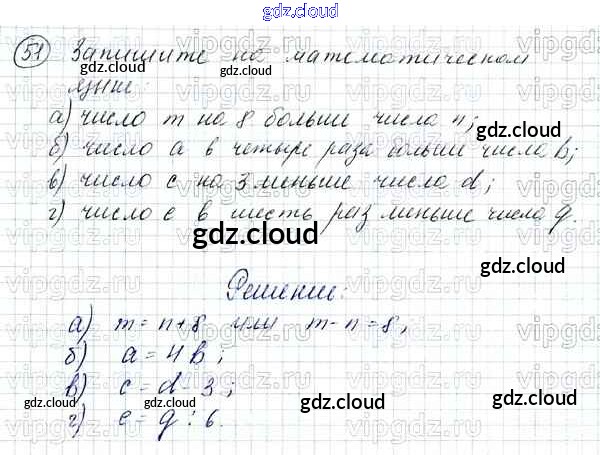 gdz.cloud
51 Запишите на математическом
языке:
а) число m на 8 больше числа n;
б) число a в четыре раза больше числа b;
в) число c на 3 меньше числа d;
г) число e в шесть раз меньше числа g.
Решение:
а) m = n + 8 или m - n = 8;
б) a = 4b;
в) c = d - 3;
г) e = g : 6.
gdz.cloud
gdz.cloud
gdz.cloud
gdz.cloud
gdz.cloud
gdz.cloud
gdz.cloud
gdz.cloud
gdz.cloud
vipgdz.ru